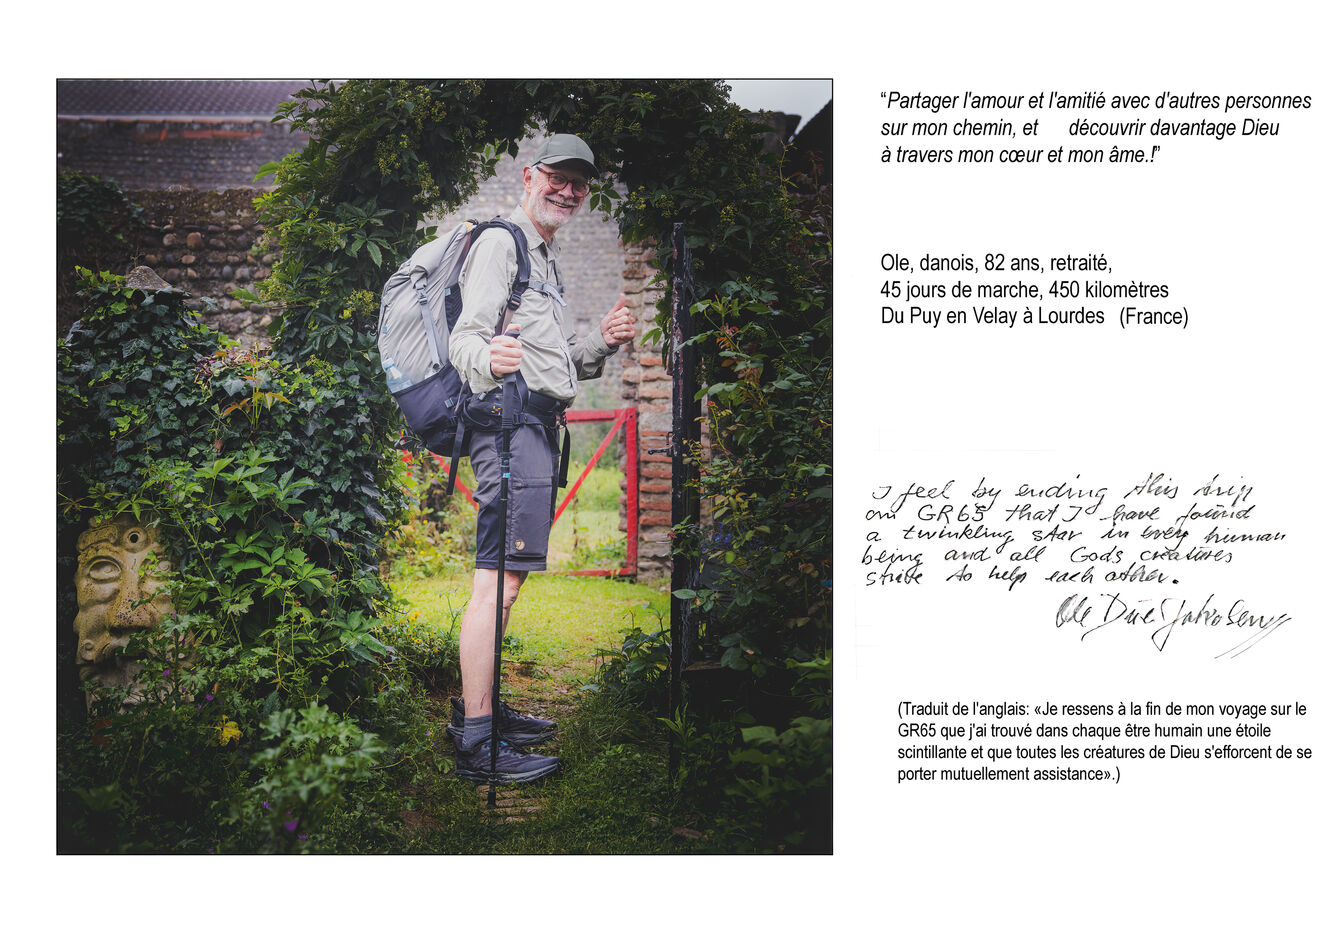 “Partager l'amour et l'amitié avec d'autres personnes
sur mon chemin, et découvrir davantage Dieu
à travers mon cœur et mon âme.!”
Ole, danois, 82 ans, retraité,
45 jours de marche, 450 kilomètres
Du Puy en Velay à Lourdes (France)
I feel by ending this trip
on GR65 that I have found
a twinkling star in every human
being and all Gods creatures
strive to help each other.
Ole Due
(Traduit de l'anglais: «Je ressens à la fin de mon voyage sur le
GR65 que j'ai trouvé dans chaque être humain une étoile
scintillante et que toutes les créatures de Dieu s'efforcent de se
porter mutuellement assistance».)